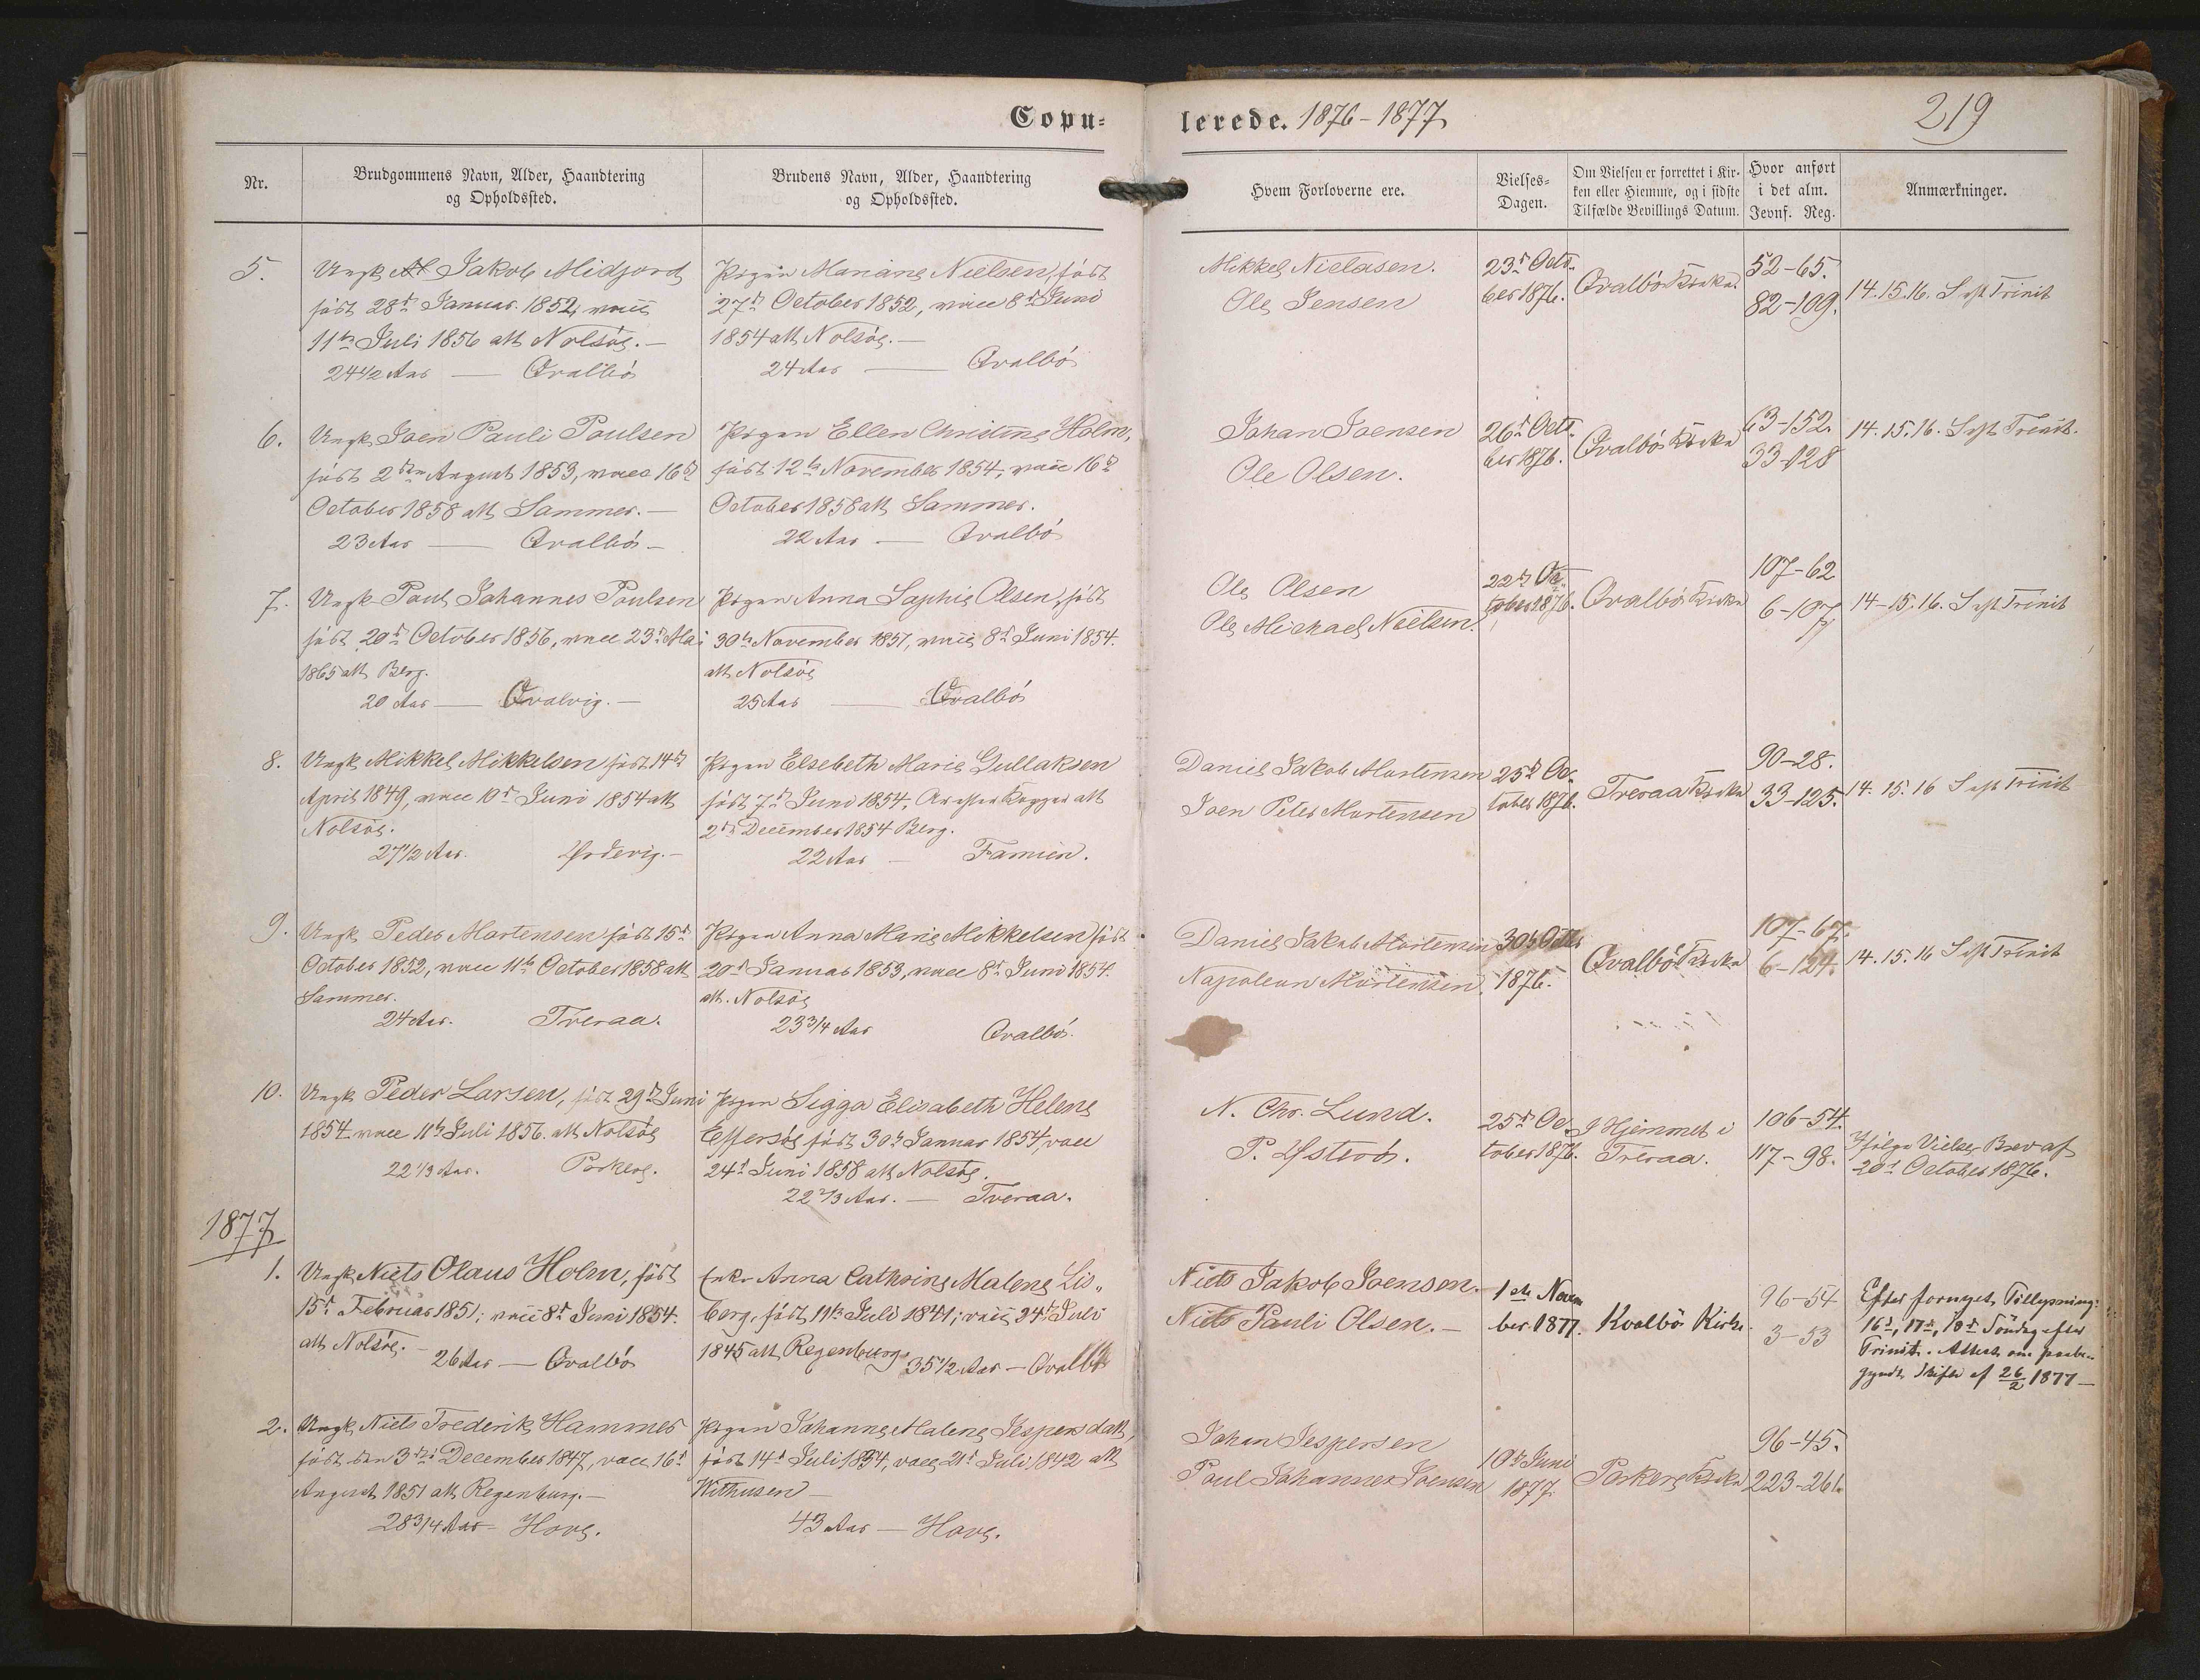 Copu-
lerede. 1876-1877
219
Nr.
Brudgommens Navn, Alder, Haandtering
og Opholdssted.
Brudens Navn, Alder, Haandtering
og Opholdssted.
Hvem Forloverne ere.
Vielses-
Dagen.
Om Vielsen er forrettet i Kir-
ken eller Hjemme, og i sidste
Tilfælde Bevillings Datum.
Hvor anført
i det alm.
Jevnf. Reg.
Anmærkninger.
5.
Ungk Jakob Midjord
født 28d Januar 1852, vacc
11te Juli 1856 att Nolsöe. —
24 1/2 Aar — Qvalbö
Pigen Mariane Nielsen, født
27d October 1852, vacc 8d Juni
1854 att Nolsöe. —
24 Aar — Qvalbö
Mikkel Nielasen.
Ole Jensen
23d Octo-
ber 1876.
Qvalbö Kirke
52-65.
82-109.
14. 15. 16. S eft Trinit
6.
Ungk Joen Pauli Poulsen
født 2den August 1853, vacc 16d
October 1858 att Sammer. —
23 Aar — Qvalbö —
Pigen Ellen Christine Holm,
født 12te November 1854, vacc 16d
October 1858 att Sammer.
22 Aar — Qvalbö
Johan Joensen
Ole Olsen.
26d Octo-
ber 1876.
Qvalbö Kirke
63-152.
33-128
14. 15. 16. S eft Trinit.
7.
Ungk Poul Johannes Poulsen
født 20d October 1856, vacc 23d Mai
1865 att Berg.
20 Aar — Qvalvig. —
Pigen Anna Sophie Olsen, født
30te November 1851, vacc 8d Juni 1854.
att Nolsöe
25 Aar — Qvalbö
Ole Olsen
Ole Michael Nielsen.
22d Oc-
tober 1876.
Qvalbö Kirke
107-62
6-107
14-15. 16. S eft Trinit
8.
Ungk Mikkel Mikkelsen født 14d
April 1849, vacc 10d Juni 1854 att
Nolsöe.
27 1/2 Aar.
Pigen Elsebeth Marie Gullaksen
født 7d Juni 1854, Kopper att
2d December 1854 Berg.
22 Aar — Famien.
Daniel Jakob Mortensen
Joen Peter Mortensen
25d Oc-
tober 1876.
Tveraa Kirke
90-28.
33-125.
14. 15. 16 S eft Trinit
9.
Ungk Peder Mortensen født 15d
October 1852, vacc 11te October 1858 att
Sammer.
24 Aar. Tveraa.
Pigen Anna Marie Mikkelsen født
20d Januar 1853, vacc 8d Juni 1854.
att. Nolsöe
23 3/4 Aar Qvalbö.
Daniel Jakob Mortensen
Napoleon Mortensen.
30te Octbr
1876.
Qvalbö Kirke
107-67.
6-124.
14. 15. 16 S eft Trinit
10.
Ungk Peder Larsen, født 29d Juni
1854 vacc 11te Juli 1856. att Nolsöe
22 1/3 Aar. Porkere.
Pigen Sigga Elisabeth Helene
Effersöe født 30te Januar 1854, vacc
24d Juni 1858 att Nolsöe.
22 2/3 Aar. — Tveraa.
N. Chr. Lund.
P. Österö.
25d Oc-
tober 1876.
I Hjemmet i
Tveraa.
106-54.
117-98.
Ifølge Vielses Brev af
20d October 1876.
1877
1.
Ungk Niels Olaus Holm, født
15d Februar 1851; vacc 8d Juni 1854.
att Nolsöe. —
26 Aar — Qvalbö
Enke Anna Cathrine Malene Lis-
berg, født 11te Juli 1841; vacc 24de Juli
1845 att Regenburg.
35 1/2 Aar — Qvalbö
Niels Jakob Joensen.
Niels Pauli Olsen. —
1ste Novem
ber. 1877.
Kvalbö Kirke.
96-54
3-53
Efter fornyet Tillysning:
16d, 17d, 18d Söndag efter
Trinit. Attest om paabe-
gyndt Skifte af 26/2 1877 —
2.
Ungk Niels Frederik Hammer
født den 3die December 1847, vacc 16d
August 1851 att Regenburg. —
28 3/4 Aar — Hove.
Pigen Johanne Malene Jespersdatt,
født 14d Juli 1834, vacc 21d Juli 1842 att
Withusen —
43 Aar — Hove.
Johan Jespersen
Poul Johannes Joensen
10de Juni
1877.
Porkere Kirke
96-45.
223-261.